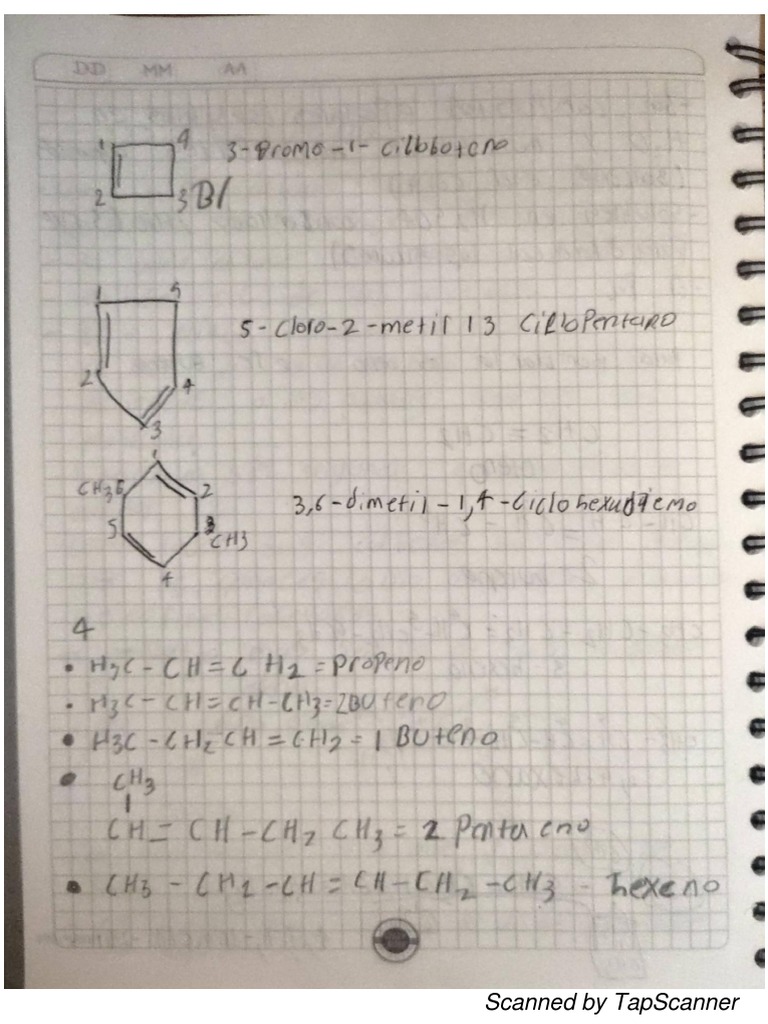 DD MM AA
1 4 3-Bromo-1-Cicloboteno
2 3 Br
1 5
5-Cloro-2-metil 13 CicloPentano
2 4
3
1
CH3 6 2 3,6-dimetil-1,4-Ciclohexadiemo
5 3 CH3
4
4
• H3C-CH=CH2=Propeno
• H3C-CH=CH-CH3=2Buteno
• H3C-CH2CH=CH2=1 Buteno
• CH3
CH=CH-CH2 CH3=2 Penta eno
• CH3-CH2-CH=CH-CH2-CH3-hexeno
Scanned by TapScanner